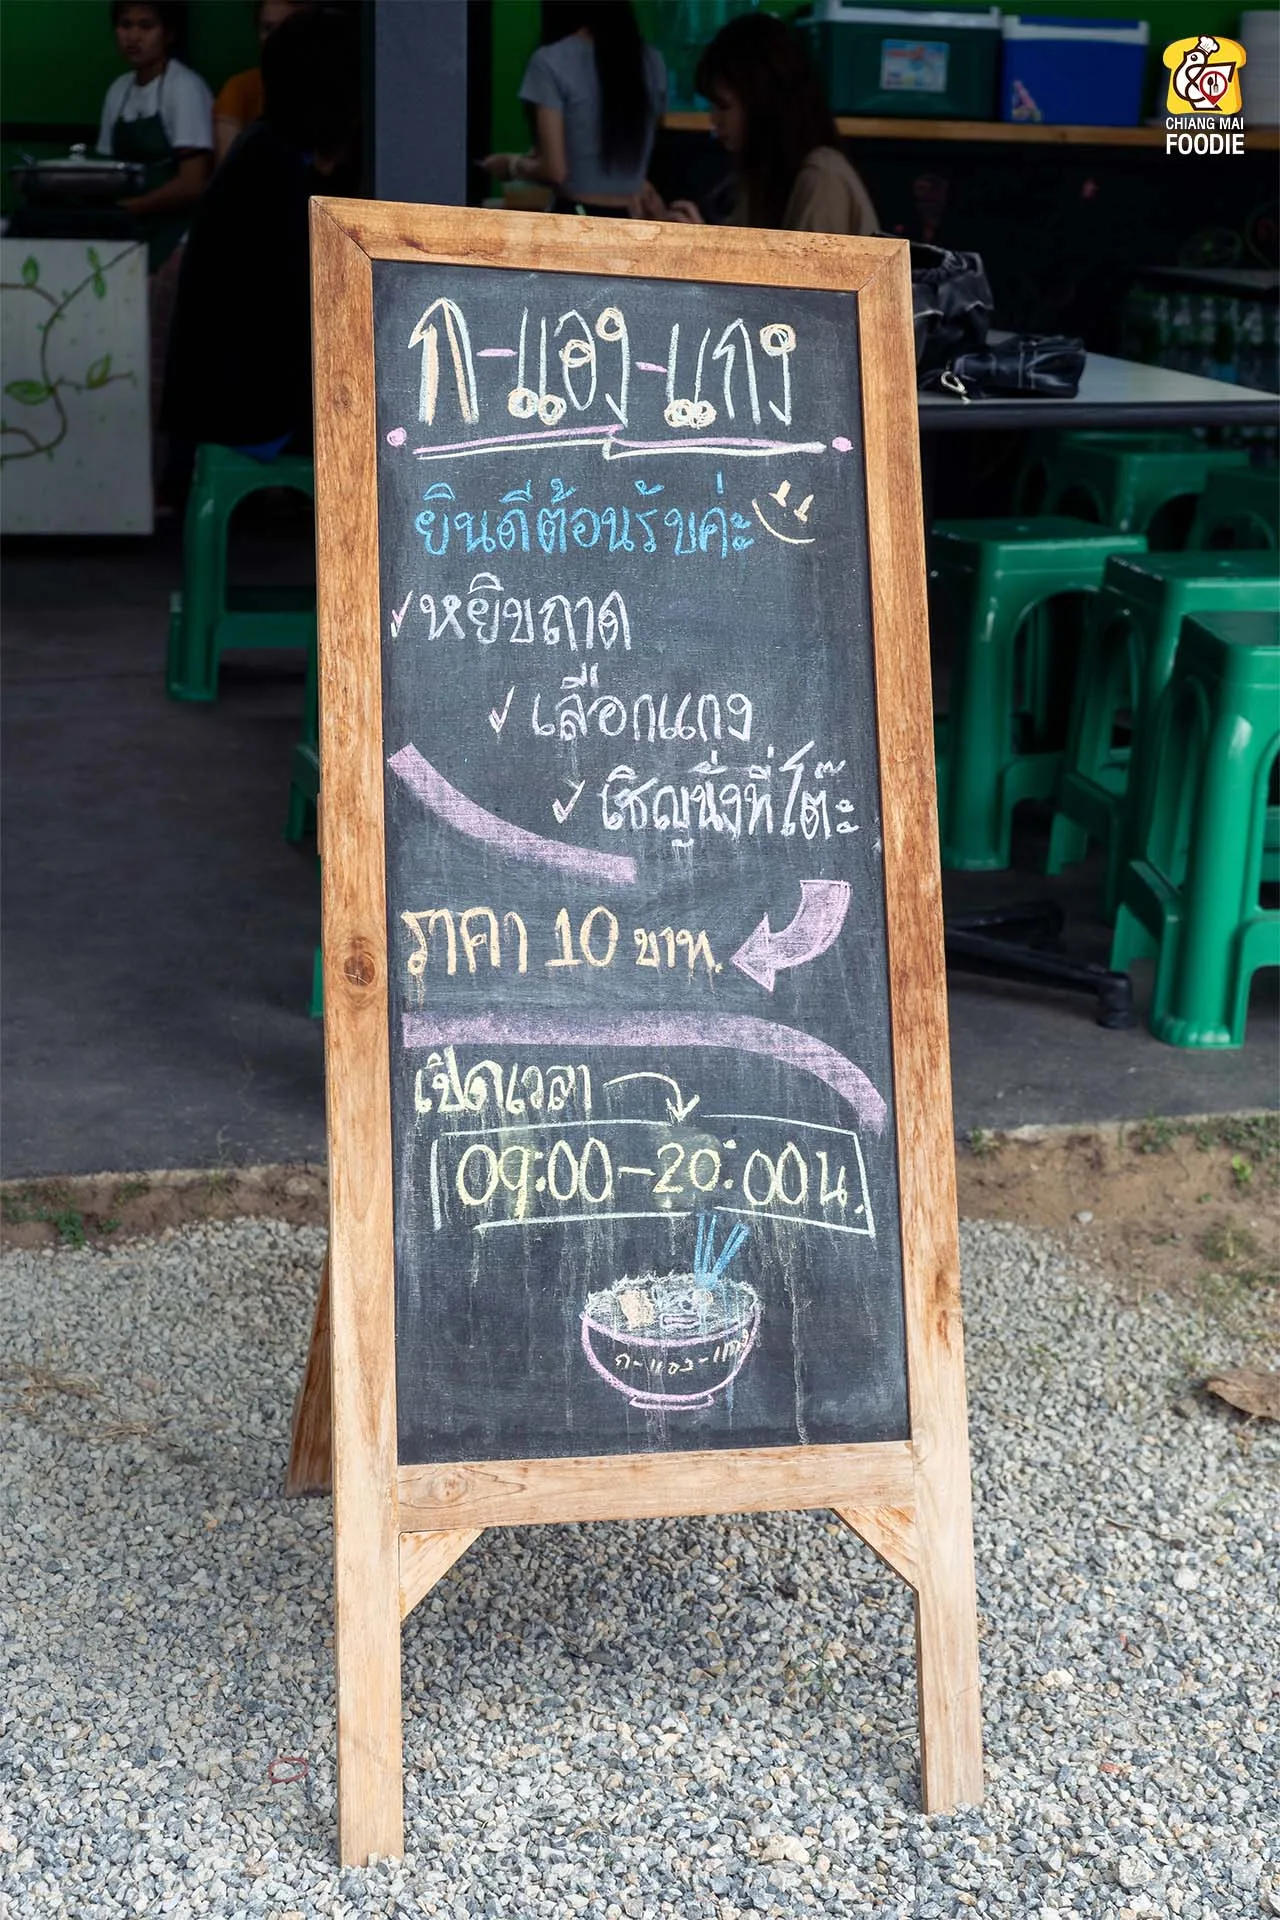 CHIANG MAI
FOODIE
ก-แอง-แกง
ยินดีต้อนรับค่ะ
✓หยิบถาด
✓เลือกแกง
✓เชิญนั่งที่โต๊ะ
ราคา 10 บาท.
เปิดเวลา
09:00-20:00 น.
ก-แอง-แกง